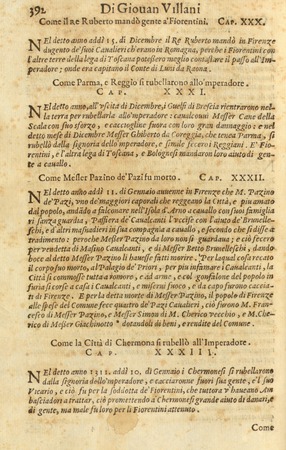 392 Di Giouan Villani
Come il Re Ruberto mandò gente a'Fiorentini. CAP. XXX.
NEl detto anno addi 15. di Dicembre il Re Ruberto mandò in Firenze
dugento de'suoi Caualieri ch'erano in Romagna, perche i Fiorentini con
l'altre terre della lega di Toscana potessero meglio contastare il passo all'Im-
peradore; onde era capitano il Conte di Luni da Rauna.
Come Parma, e Reggio si rubellarono allo'mperadore.
CAP. XXXI.
NEl detto anno, all'vscita di Dicembre, i Guelfi di Brescia rientrarono nel-
la terra per rubellarla allo'mperadore: caualconui Messer Cane della
Scala con suo sforzo, e cacciogline fuora con loro gran dannaggio; e nel
detto mese di Dicembre Messer Ghiberto da Coreggia, che tenua Parma, si
rubellò dalla signoria dello'mperadore, e simile feceroi Reggiani. E' Fio-
rentini, e l'altra lega di Toscana, e Bolognesi mandaron loro aiuto di gen-
te a cauallo.
Come Messer Pazino de'Pazi fu morto. CAP. XXXII.
NEl detto anno addi 11. di Gennaio auuenne in Firenze che M. Pazino
de'Pazi, vno de'maggiori caporali che reggeano la Città, e piu amato
dal popolo, andādo a falconare nell'isola d'Arno a cauallo con suoi famiglia
ri sanza guardia, Passiera de'Caualcanti l'vccise con l'aiuto de Brunelle-
schi, e d'altri masnadieri in sua compagnia a cauallo, e secondo che si disse à
tradimento: peroche Messer Pazino da loro non si guardaua; e ciò fecero
per vendetta di Masino Caualcanti, e di Messer Betto Brunelleschi, dando-
boce al detto Messer Pazino li hauesse fatti morire. Per laqual cosa recato
il corpo suo morto, al Palagio de'Priori, per piu infamare i Caualcanti, la
Città si commosse tutta a romore, e ad arme, e col gonfalone del popolo in
furia si corse a casa i Caualcanti, e misersi fuoco, e da capo furono caccia-
ti di Firenze. E per la detta morte di Messer Pazino, il popolo di Firenze
alle spese del Comune fece quattro de'Pazi Caualieri, ciò furono M. Fran-
cesco di Messer Pazino, e Messer Simon di M. Cherico vecchio, e M. Che-
rico di Messer Giachinotto dotandoli di beni, e rendite del Comune.
Come la Città di Chermona si rubellò all'Imperadore.
CAP. XXXIII.
NEl detto anno 1311. addi 10. di Gennaio i Chermonesi si rubellarono
dalla signoria dello'mperadore, e cacciaronne fuori sua gente, e'l suo
Vicario, e ciò fu per la sodotta de'Fiorentini, che tuttora v'haueano Am-
basciadori a trattar, ciò promettendo a Chermonesi grande aiuto di danari, e
di gente, ma male fu loro per li Fiorentini attenuto.
Come